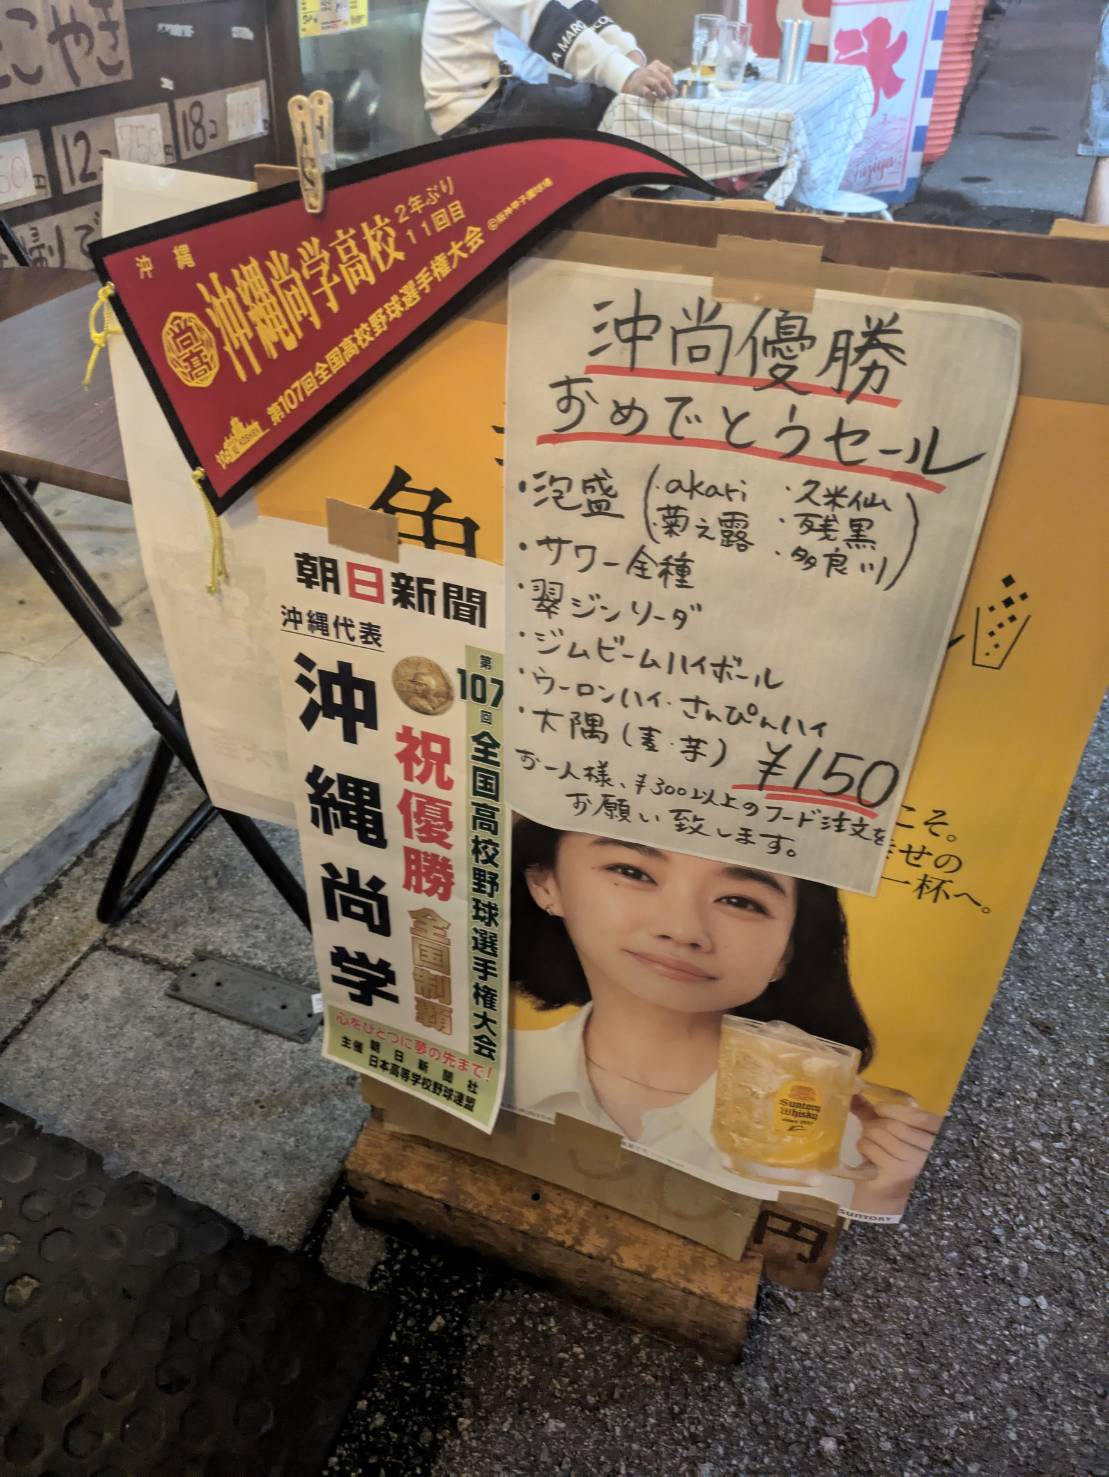 こやき
12コ
750
18コ
沖縄
沖縄尚学高校
2年ぶり
11回目
第107回全国高校野球選手権大会
©阪神甲子園球場
氷
Fujiya
沖尚優勝
おめでとうセール
・泡盛(・akari ・久米仙
・菊之露 ・残黒
・多良川)
・サワー全種
・翠ジンソーダ
・ジムビームハイボール
・ウーロンハイ・さんぴんハイ
・大隅(麦・芋) ¥150
お一人様、¥300以上のフード注文を
お願い致します。
角
朝日新聞
沖縄代表
沖縄尚学
祝優勝
全国制覇
第107回全国高校野球選手権大会
心をひとつに夢の先まで!
主催 朝日新聞社
日本高等学校野球連盟
こそ。
幸せの
一杯へ。
Suntory
Whisky
SUNTORY
円